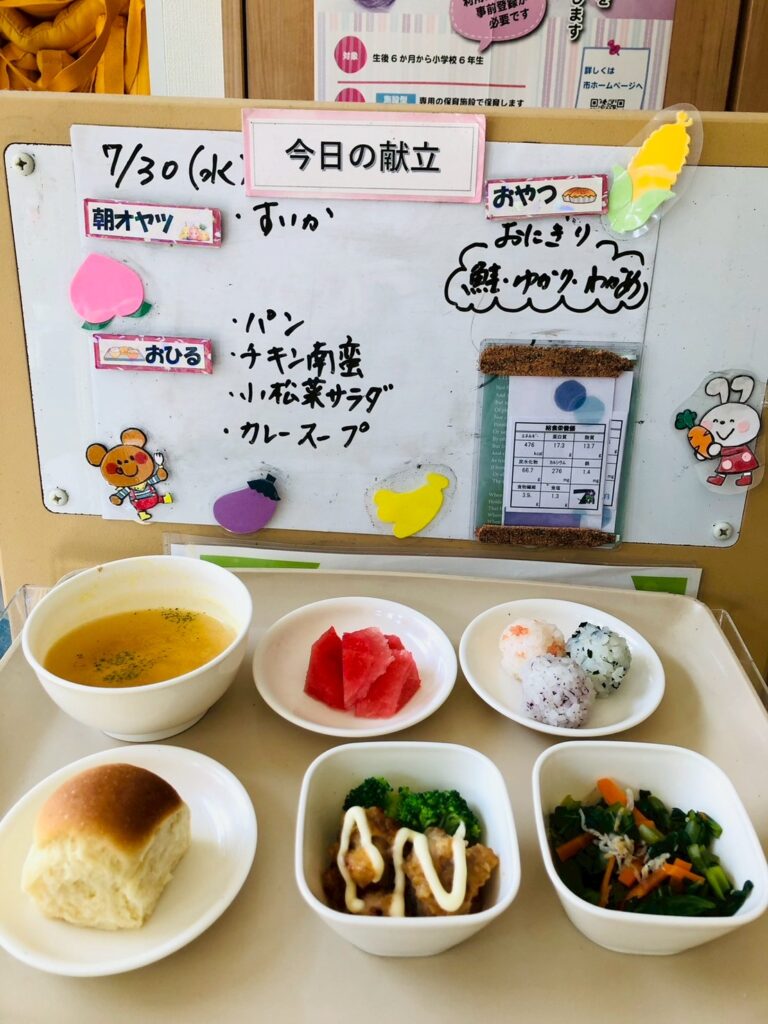 事前登録が
必要です
します
対象 生後6か月から小学校6年生
施設型 専用の保育施設で保育します
詳しくは
市ホームページへ
今日の献立
7/30(水)
朝オヤツ ・すいか
おやつ
おにぎり
鮭・ゆかり・わかめ
おひる
・パン
・チキン南蛮
・小松菜サラダ
・カレースープ
給食栄養価
エネルギー 蛋白質 脂質
476 17.3 13.7
kcal g g
炭水化物 カルシウム 鉄
66.7 276 1.4
g mg mg
食物繊維 食塩
3.9 1.3
g g